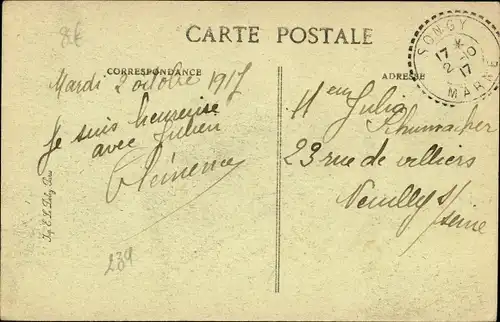 8€
CARTE POSTALE
CORRESPONDANCE
ADRESSE
SONGY
17 * 
2-10
17
MARNE
Mardi 2 octobre 1917
Je suis heureuse
avec Julien
Clémence
239
Melle Julia
Schumacher
23 rue de villiers
Neuilly s/
seine